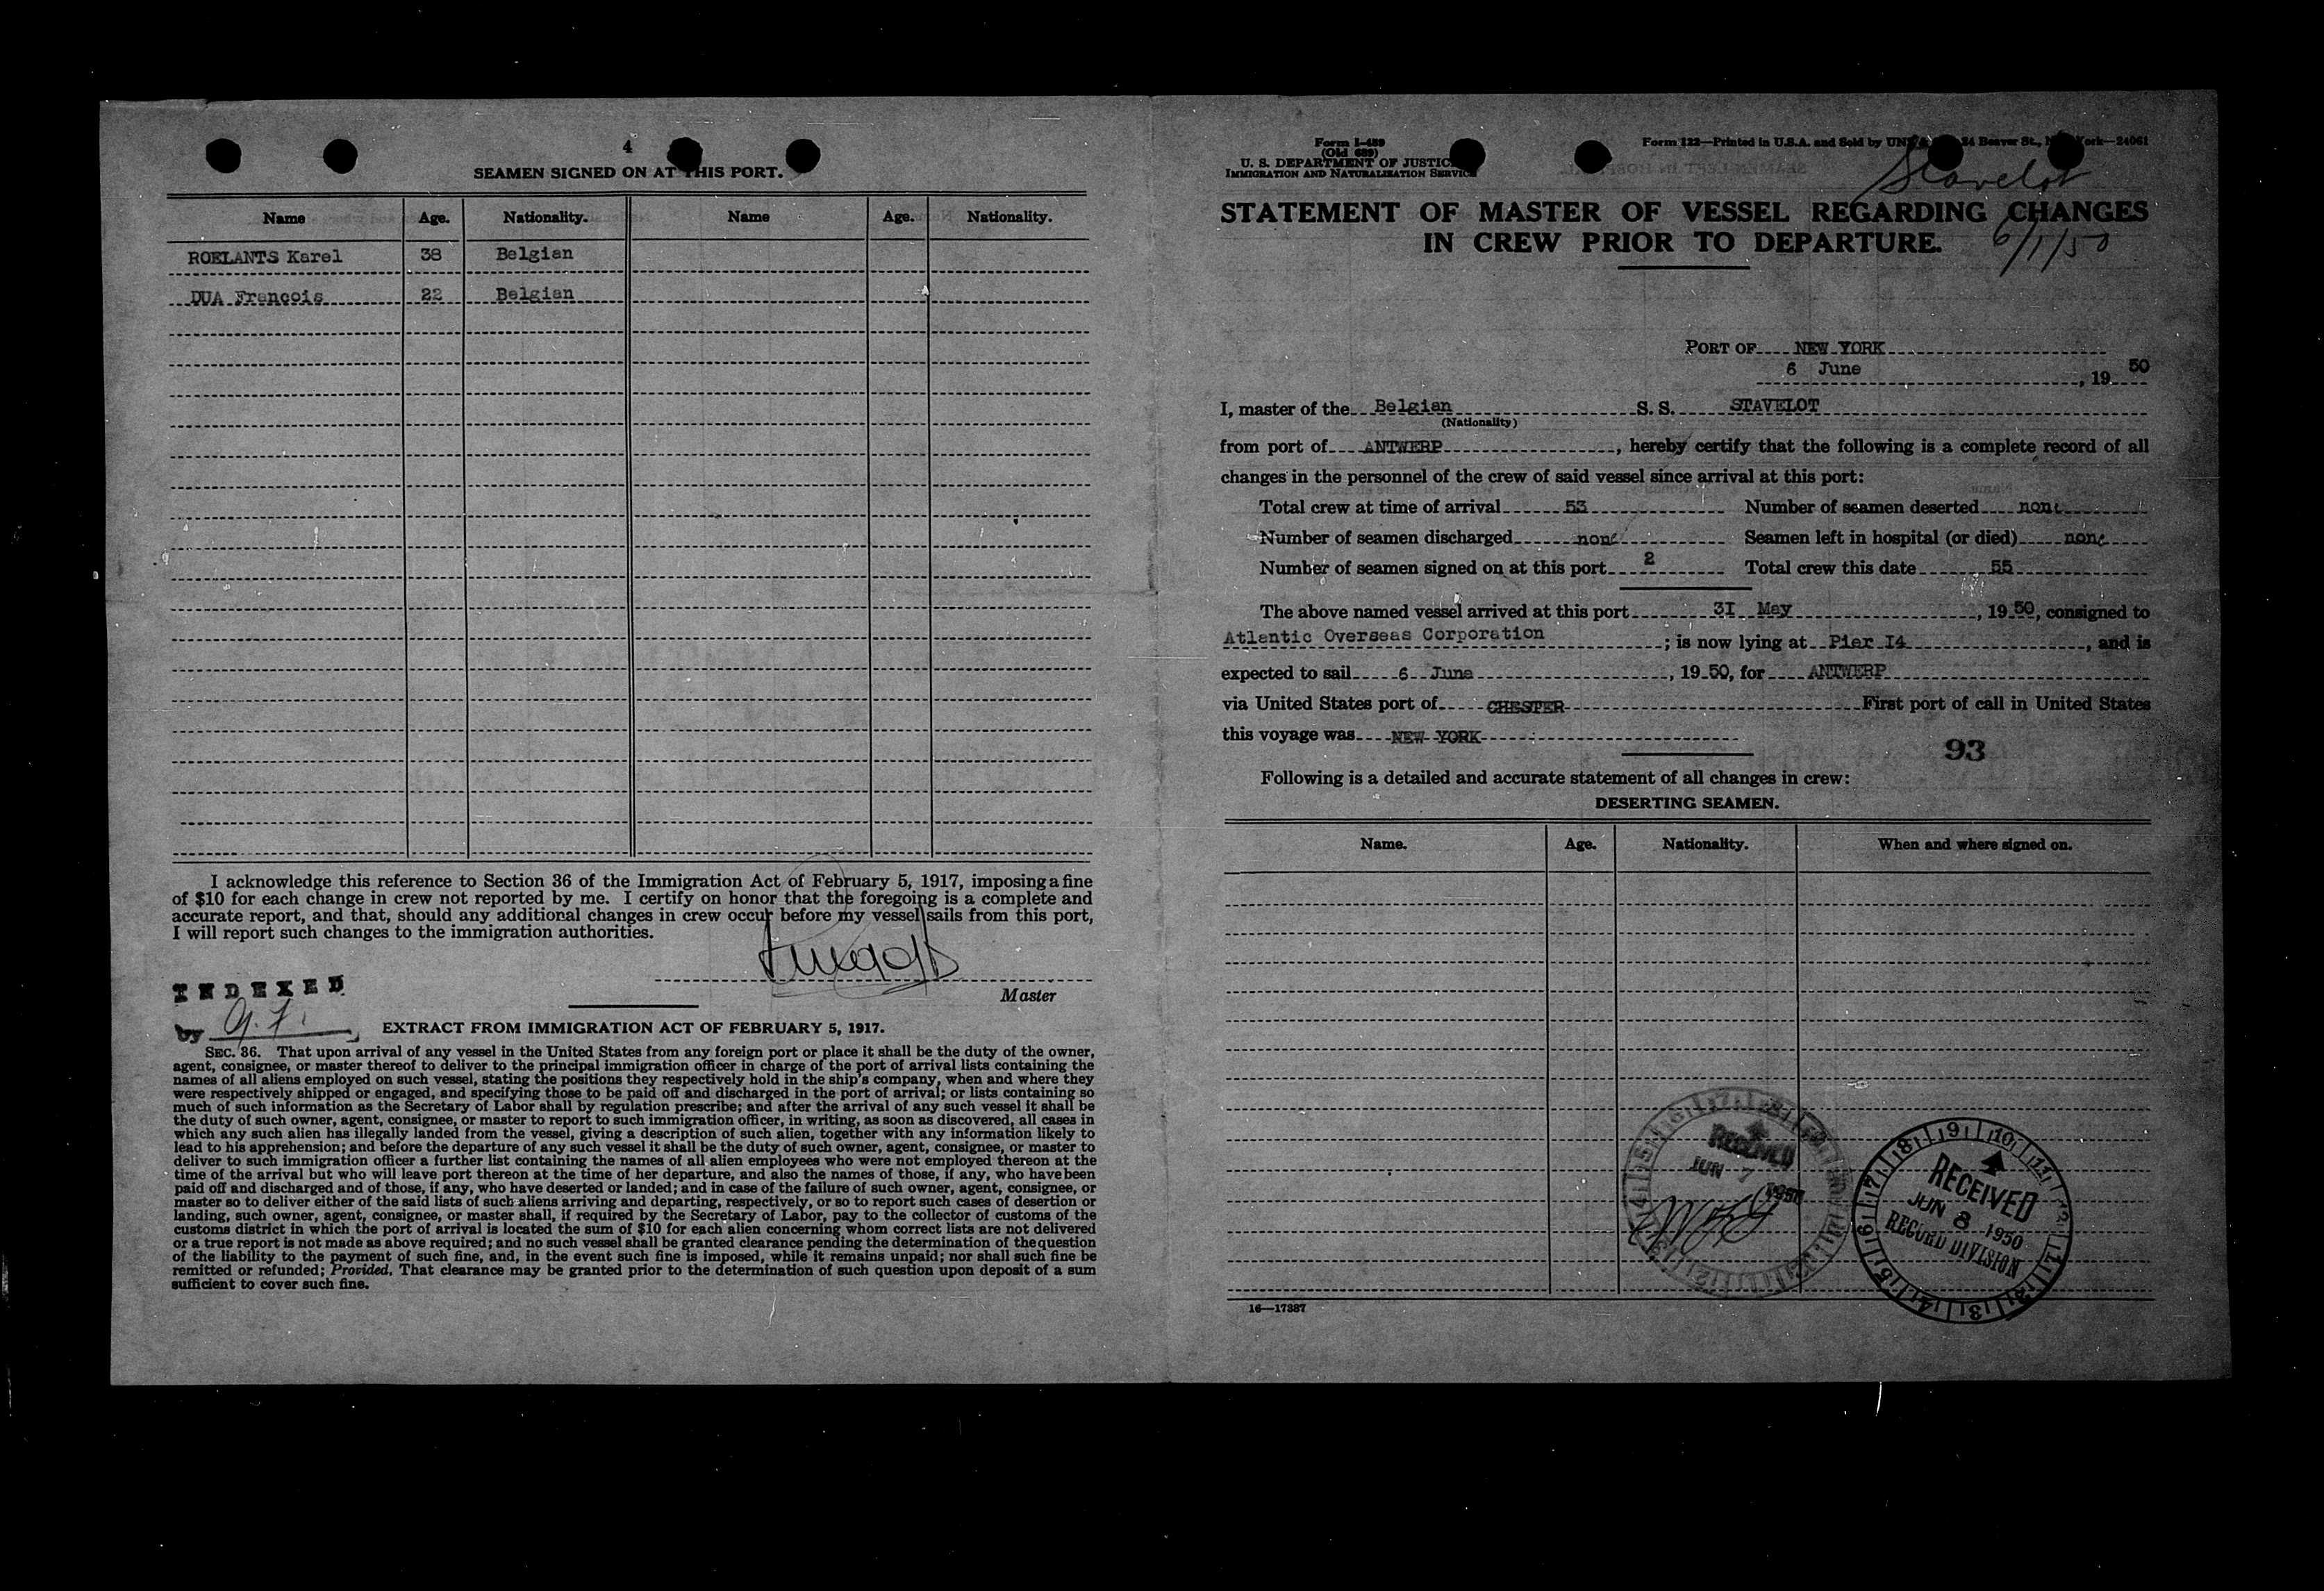 4
SEAMEN SIGNED ON AT THIS PORT.
Name Age. Nationality. Name Age. Nationality.
ROELANTS Karel 38 Belgian
DUA François 22 Belgian
I acknowledge this reference to Section 36 of the Immigration Act of February 5, 1917, imposing a fine
of $10 for each change in crew not reported by me. I certify on honor that the foregoing is a complete and
accurate report, and that, should any additional changes in crew occur before my vessel sails from this port,
I will report such changes to the immigration authorities.
Master
INDEXED
by
EXTRACT FROM IMMIGRATION ACT OF FEBRUARY 5, 1917.
SEC. 36. That upon arrival of any vessel in the United States from any foreign port or place it shall be the duty of the owner,
agent, consignee, or master thereof to deliver to the principal immigration officer in charge of the port of arrival lists containing the
names of all aliens employed on such vessel, stating the positions they respectively hold in the ship's company, when and where they
were respectively shipped or engaged, and specifying those to be paid off and discharged in the port of arrival; or lists containing so
much of such information as the Secretary of Labor shall by regulation prescribe; and after the arrival of any such vessel it shall be
the duty of such owner, agent, consignee, or master to report to such immigration officer, in writing, as soon as discovered, all cases in
which any such alien has illegally landed from the vessel, giving a description of such alien, together with any information likely to
lead to his apprehension; and before the departure of any such vessel it shall be the duty of such owner, agent, consignee, or master to
deliver to such immigration officer a further list containing the names of all alien employees who were not employed thereon at the
time of the arrival but who will leave port thereon at the time of her departure, and also the names of those, if any, who have been
paid off and discharged and of those, if any, who have deserted or landed; and in case of the failure of such owner, agent, consignee, or
master so to deliver either of the said lists of such aliens arriving and departing, respectively, or so to report such cases of desertion or
landing, such owner, agent, consignee, or master shall, if required by the Secretary of Labor, pay to the collector of customs of the
customs district in which the port of arrival is located the sum of $10 for each alien concerning whom correct lists are not delivered
or a true report is not made as above required; and no such vessel shall be granted clearance pending the determination of the question
of the liability to the payment of such fine, and, in the event such fine is imposed, while it remains unpaid; nor shall such fine be
remitted or refunded; Provided, That clearance may be granted prior to the determination of such question upon deposit of a sum
sufficient to cover such fine.
Form I-489
(Old 689)
U. S. DEPARTMENT OF JUSTICE
IMMIGRATION AND NATURALIZATION SERVICE
Form 122—Printed in U.S.A. and Sold by Beaver St., 24061
Stavelot
6/1/50
STATEMENT OF MASTER OF VESSEL REGARDING CHANGES
IN CREW PRIOR TO DEPARTURE.
PORT OF NEW YORK
6 June , 19 50
I, master of the Belgian S. S. STAVELOT
(Nationality)
from port of ANTWERP , hereby certify that the following is a complete record of all
changes in the personnel of the crew of said vessel since arrival at this port:
Total crew at time of arrival 53 Number of seamen deserted none
Number of seamen discharged none Seamen left in hospital (or died) none
Number of seamen signed on at this port 2 Total crew this date 55
The above named vessel arrived at this port 3I May , 19 50, consigned to
Atlantic Overseas Corporation ; is now lying at Pier I4 , and is
expected to sail 6 June , 19 50, for ANTWERP
via United States port of CHESTER First port of call in United States
this voyage was NEW YORK
93
Following is a detailed and accurate statement of all changes in crew:
DESERTING SEAMEN.
Name. Age. Nationality. When and where signed on.
RECEIVED
JUN 7 1950
RECEIVED
JUN 8 1950
RECORD DIVISION
16—17387